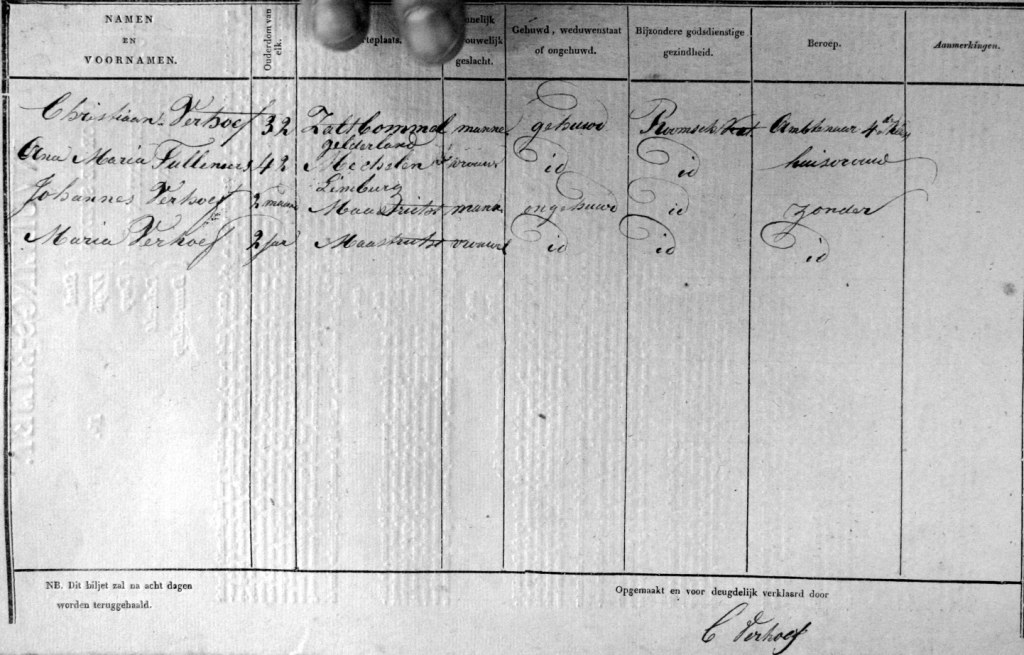 NAMEN
EN
VOORNAMEN.
Ouderdom van elk.
rteplaats.
nnelijk
rouwelijk
geslacht.
Gehuwd, weduwenstaat
of ongehuwd.
Bijzondere godsdienstige
gezindheid.
Beroep.
Aanmerkingen.
Christiaan Verhoef 32 Zaltbommel manne gehuwd Roomsch Kat Ambtenaar 4de
gelderland
Ana Maria 42 Mechelen vrouw id id huisvrouw
Limburg
Johannes Verhoef 2 maand Maastricht man ongehuwd id zonder
Maria Verhoef 2 jaar Maastricht vrouw id id id
NB. Dit biljet zal na acht dagen
worden teruggehaald.
Opgemaakt en voor deugdelijk verklaard door
C Verhoef